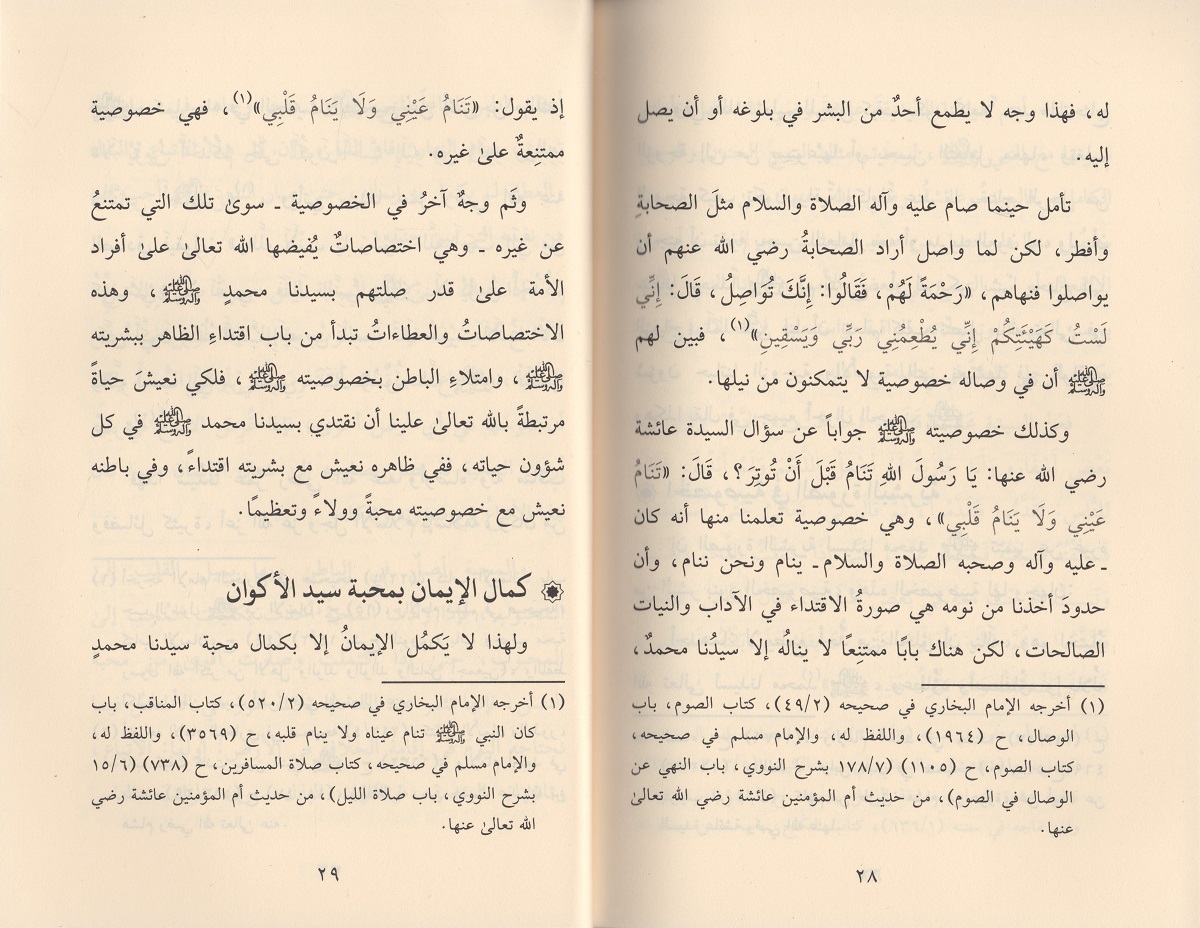 له، فهذا وجه لا يطمع أحدٌ من البشر في بلوغه أو أن يصل
إليه.
تأمل حينما صام عليه وآله الصلاة والسلام مثلَ الصحابةِ
وأفطر، لكن لما واصل أراد الصحابةُ رضي الله عنهم أن
يواصلوا فنهاهم، «رَحْمَةً لَهُمْ، فَقَالُوا: إِنَّكَ تُوَاصِلُ، قَالَ: إِنِّي
لَسْتُ كَهَيْئَتِكُمْ إِنِّي يُطْعِمُنِي رَبِّي وَيَسْقِينِ»(١)، فبين لهم
ﷺ أن في وصاله خصوصية لا يتمكنون من نيلها.
وكذلك خصوصيته ﷺ جواباً عن سؤال السيدة عائشة
رضي الله عنها: يَا رَسُولَ اللهِ تَنَامُ قَبْلَ أَنْ تُوتِرَ؟، قَالَ: «تَنَامُ
عَيْنِي وَلَا يَنَامُ قَلْبِي»، وهي خصوصية تعلمنا منها أنه كان
ـ عليه وآله وصحبه الصلاة والسلام ـ ينام ونحن ننام، وأن
حدودَ أخذنا من نومه هي صورةُ الاقتداء في الآداب والنيات
الصالحات، لكن هناك بابًا ممتنِعًا لا ينالُه إلا سيدُنا محمدٌ،
(١) أخرجه الإمام البخاري في صحيحه (٤٩/٢)، كتاب الصوم، باب
الوصال، ح (١٩٦٤)، واللفظ له، والإمام مسلم في صحيحه،
كتاب الصوم، ح (١١٠٥) (١٧٨/٧ بشرح النووي، باب النهي عن
الوصال في الصوم)، من حديث أم المؤمنين عائشة رضي الله تعالىٰ
عنها.
٢٨
إذ يقول: «تَنَامُ عَيْنِي وَلَا يَنَامُ قَلْبِي»(١)، فهي خصوصية
ممتنِعةٌ علىٰ غيره.
وثَم وجهٌ آخرُ في الخصوصية ـ سوىٰ تلك التي تمتنعُ
عن غيره ـ وهي اختصاصاتٌ يُفيضها الله تعالىٰ علىٰ أفراد
الأمة علىٰ قدر صلتهم بسيدنا محمدٍ ﷺ، وهذه
الاختصاصاتُ والعطاءاتُ تبدأ من باب اقتداءِ الظاهر ببشريته
ﷺ، وامتلاءِ الباطن بخصوصيته ﷺ، فلكي نعيشَ حياةً
مرتبطةً بالله تعالىٰ علينا أن نقتدي بسيدنا محمد ﷺ في كل
شؤون حياته، ففي ظاهره نعيش مع بشريته اقتداءً، وفي باطنه
نعيش مع خصوصيته محبةً وولاءً وتعظيمًا.
كمال الإيمان بمحبة سيد الأكوان
ولهذا لا يَكمُل الإيمانُ إلا بكمال محبة سيدنا محمدٍ
(١) أخرجه الإمام البخاري في صحيحه (٥٢٠/٢)، كتاب المناقب، باب
كان النبي ﷺ تنام عيناه ولا ينام قلبه، ح (٣٥٦٩)، واللفظ له،
والإمام مسلم في صحيحه، كتاب صلاة المسافرين، ح (٧٣٨) (١٥/٦
بشرح النووي، باب صلاة الليل)، من حديث أم المؤمنين عائشة رضي
الله تعالىٰ عنها.
٢٩